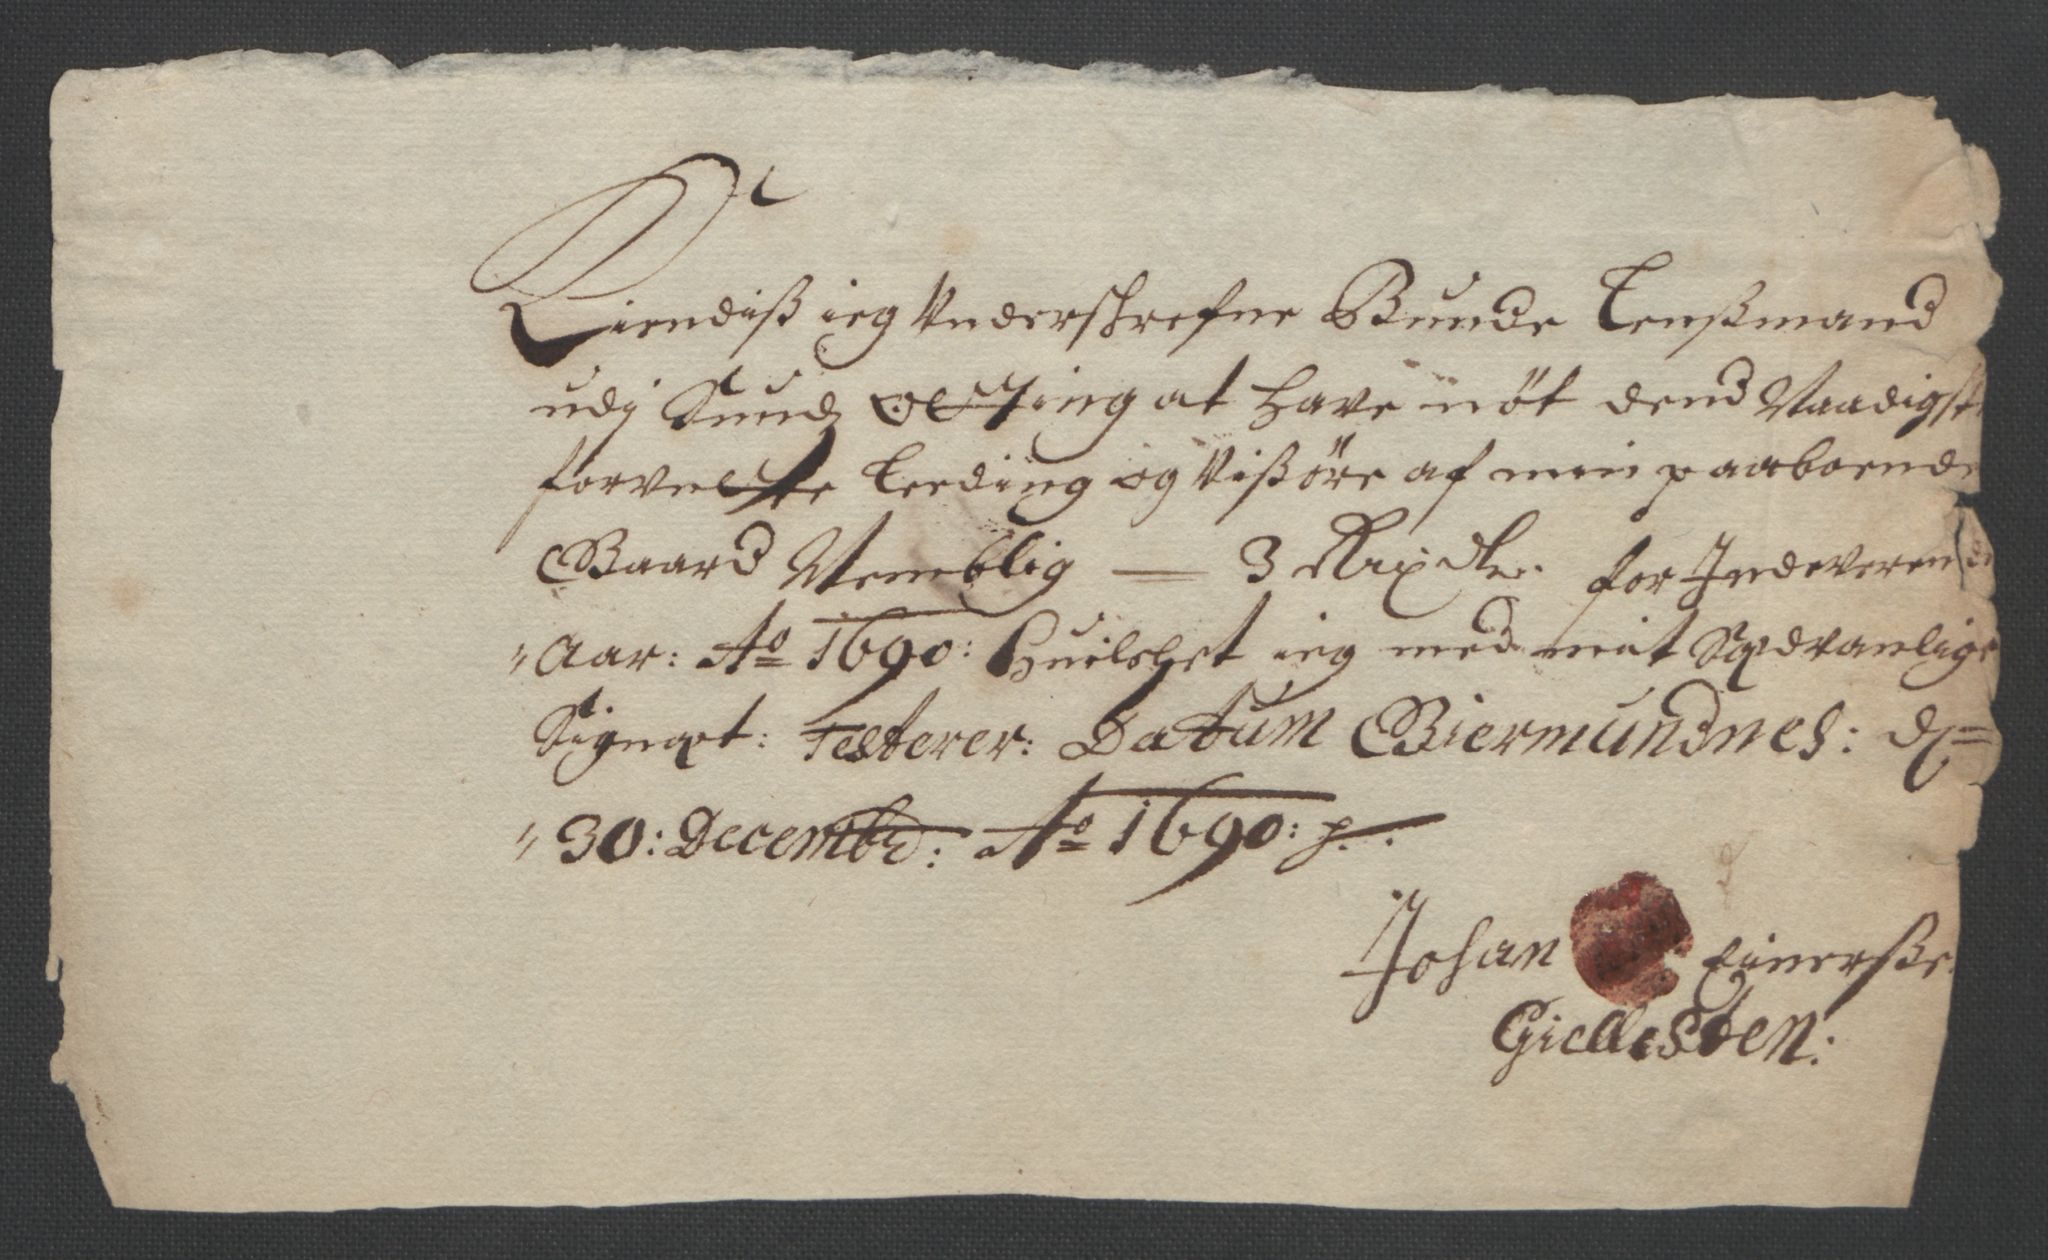 Kiendiß ieg Underschrefne Bunde Lenßmand
udj Sunds otting at have nöt dend Naadigst
forundte Leeding og Vißöre af min paaboende
Gaard Nemblig — 3 Rixdlr. for Indeverende
"Aar: Ao 1690: Huilchet ieg med mit Sædvanlige
Signet: Testerer: Datum Biermundnes: d=
"30: Decembr: Ao 1690: p.
Johan Einerße
Giellesten: